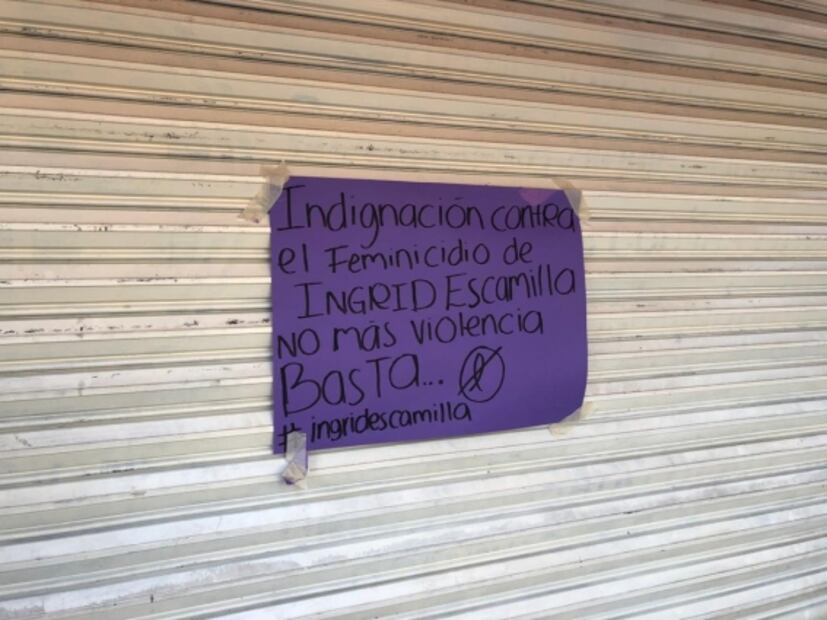 Indignación contra
el Feminicidio de
INGRID Escamilla
NO más violencia
BasTa...
#ingridescamilla